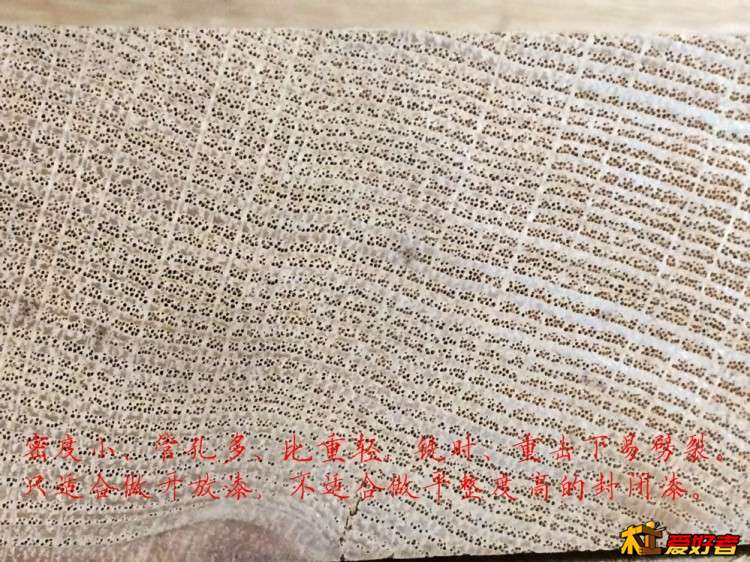 密度小、管孔多、比重轻，锐时、重击下易劈裂。
只适合做开放漆，不适合做平整度高的封闭漆。
木工爱好者